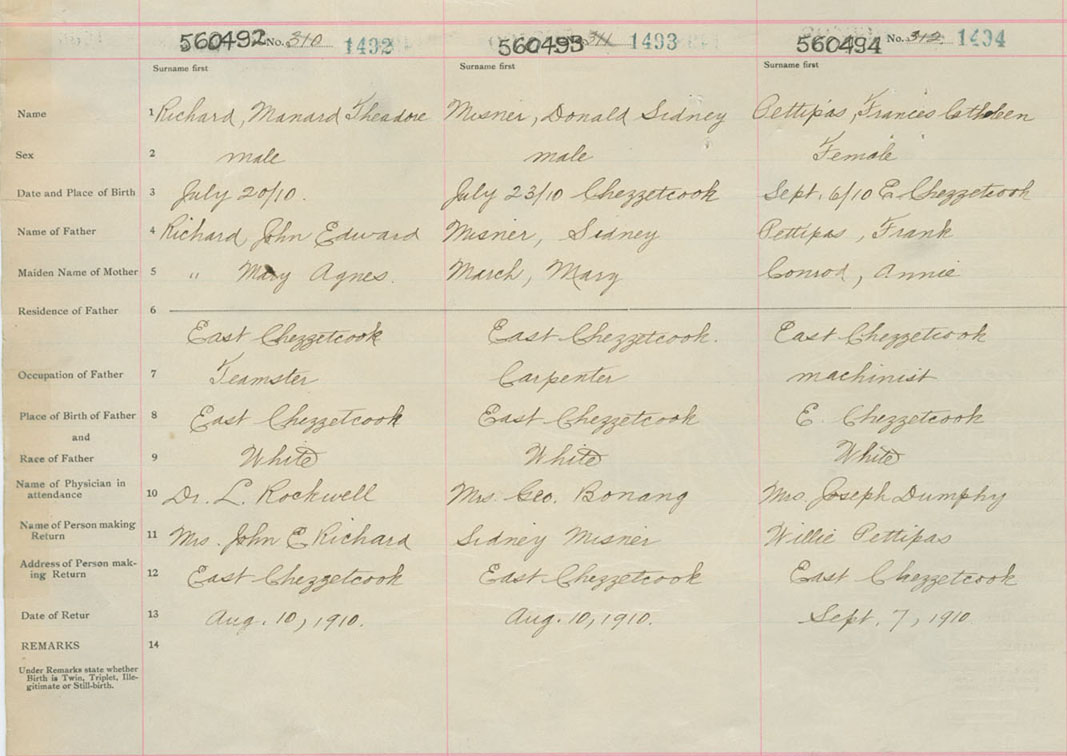 560492 No. 310 1492 560493 311 1493 560494 No. 312 1494
Surname first Surname first Surname first
Name 1 Richard, Manard Theadore Misner, Donald Sidney Pettipas, Frances Cathleen
Sex 2 male male Female
Date and Place of Birth 3 July 20/10. July 23/10 Chezzetcook Sept. 6/10 E. Chezzetcook
Name of Father 4 Richard, John Edward Misner, Sidney Pettipas, Frank
Maiden Name of Mother 5 " Mary Agnes. March, Mary Conrod, Annie
Residence of Father 6
East Chezzetcook East Chezzetcook. East Chezzetcook
Occupation of Father 7 Teamster Carpenter machinist
Place of Birth of Father 8 East Chezzetcook East Chezzetcook E. Chezzetcook
and
Race of Father 9 White White White
Name of Physician in
attendance 10 Dr. L. Rockwell Mrs. Geo. Bonang Mrs. Joseph Dumphy
Name of Person making
Return 11 Mrs. John E Richard Sidney Misner Willie Pettipas
Address of Person mak-
ing Return 12 East Chezzetcook East Chezzetcook East Chezzetcook
Date of Retur 13 Aug. 10, 1910. Aug. 10, 1910. Sept. 7, 1910
REMARKS 14
Under Remarks state whether
Birth is Twin, Triplet, Ille-
gitimate or Still-birth.